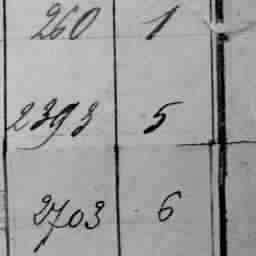 260 1
2393 5
2703 6